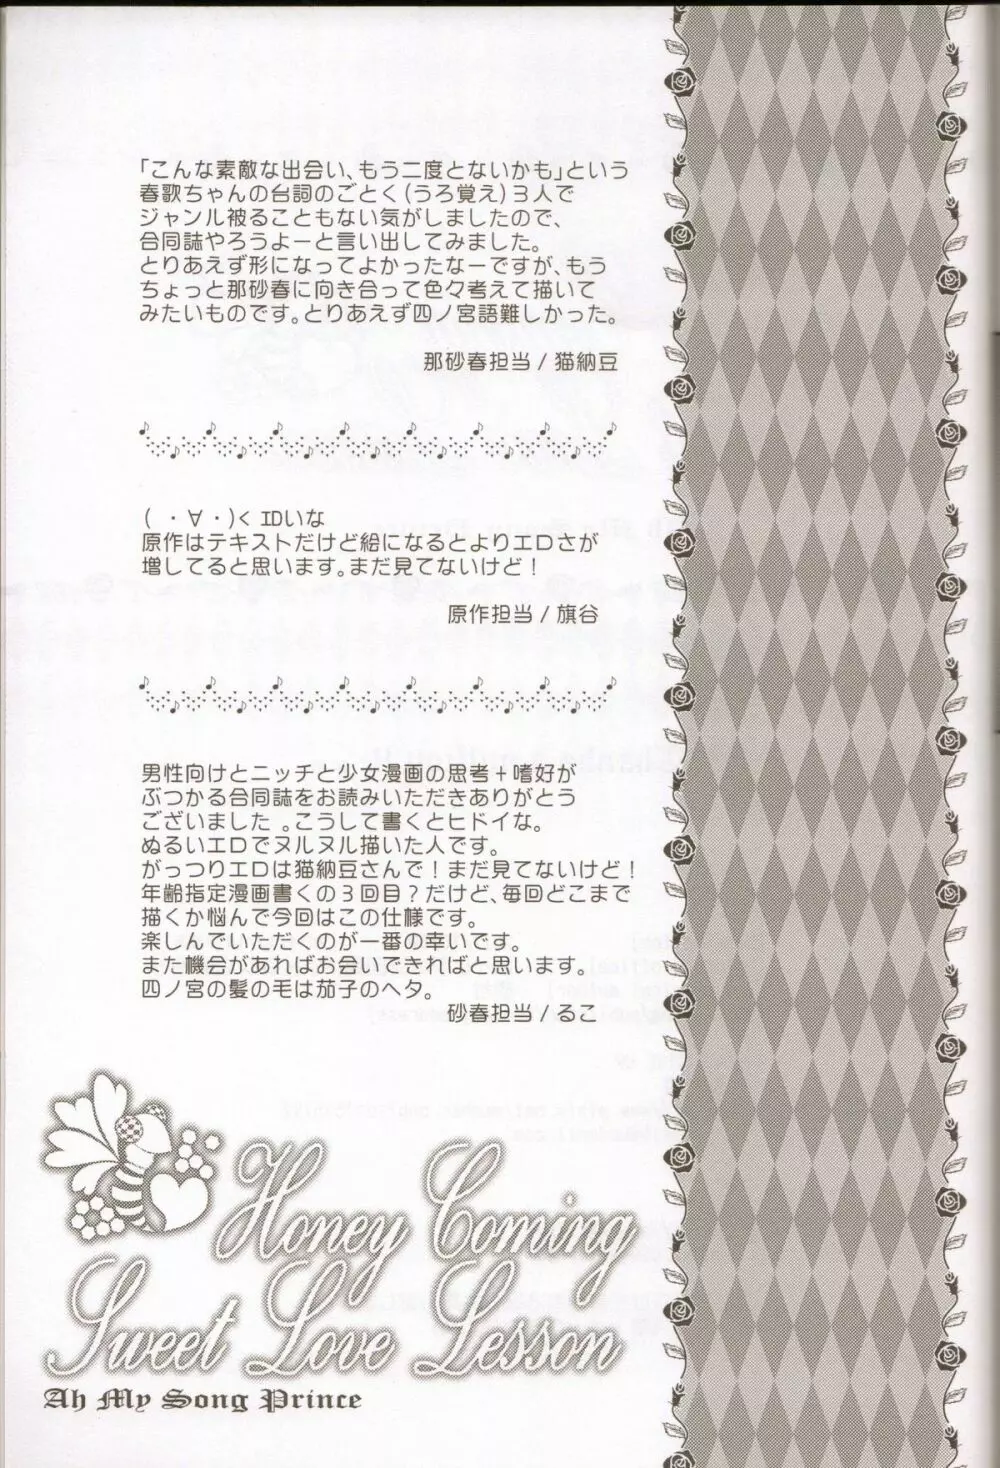 「こんな素敵な出会い、もう二度とないかも」という
春歌ちゃんの台詞のごとく(うろ覚え)3人で
ジャンル被ることもない気がしましたので、
合同誌やろうよーと言い出してみました。
とりあえず形になってよかったなーですが、もう
ちょっと那砂春に向き合って色々考えて描いて
みたいものです。とりあえず四ノ宮語難しかった。
那砂春担当/猫納豆
( ・∀・)< エロいな
原作はテキストだけど絵になるとよりエロさが
増してると思います。まだ見てないけど!
原作担当/旗谷
男性向けとニッチと少女漫画の思考+嗜好が
ぶつかる合同誌をお読みいただきありがとう
ございました 。こうして書くとヒドイな。
ぬるいエロでヌルヌル描いた人です。
がっつりエロは猫納豆さんで!まだ見てないけど!
年齢指定漫画書くの3回目?だけど、毎回どこまで
描くか悩んで今回はこの仕様です。
楽しんでいただくのが一番の幸いです。
また機会があればお会いできればと思います。
四ノ宮の髪の毛は茄子のヘタ。
砂春担当/るこ
Honey Coming
Sweet Love Lesson
Ah My Song Prince